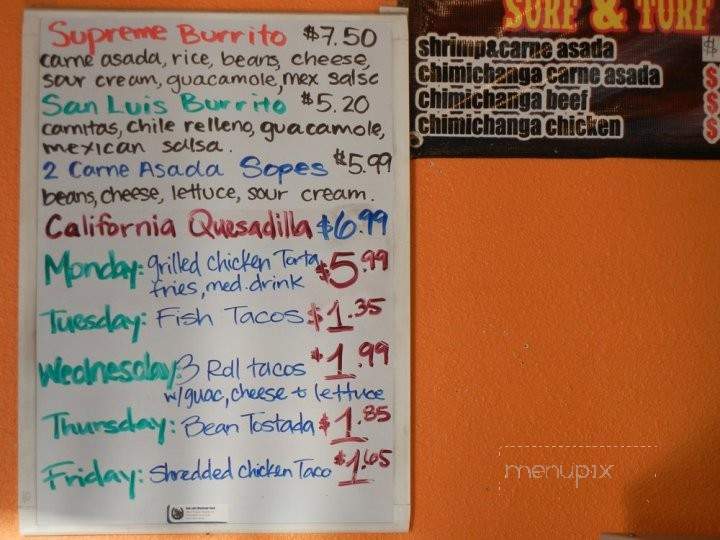 Supreme Burrito $7.50
carne asada, rice, beans, cheese,
sour cream, guacamole, mex salsa
San Luis Burrito $5.20
carnitas, chile relleno, guacamole,
mexican salsa.
2 Carne Asada Sopes $5.99
beans, cheese, lettuce, sour cream.
California Quesadilla $6.99
Monday: grilled chicken Torta $5.99
fries, med. drink
Tuesday: Fish Tacos $1.35
Wednesday: 3 Roll tacos $1.99
w/guac, cheese & lettuce
Thursday: Bean Tostada $1.85
Friday: Shredded chicken Taco $1.65
SURF & TURF
shrimp&carne asada $
chimichanga carne asada $
chimichanga beef $
chimichanga chicken $
menupix